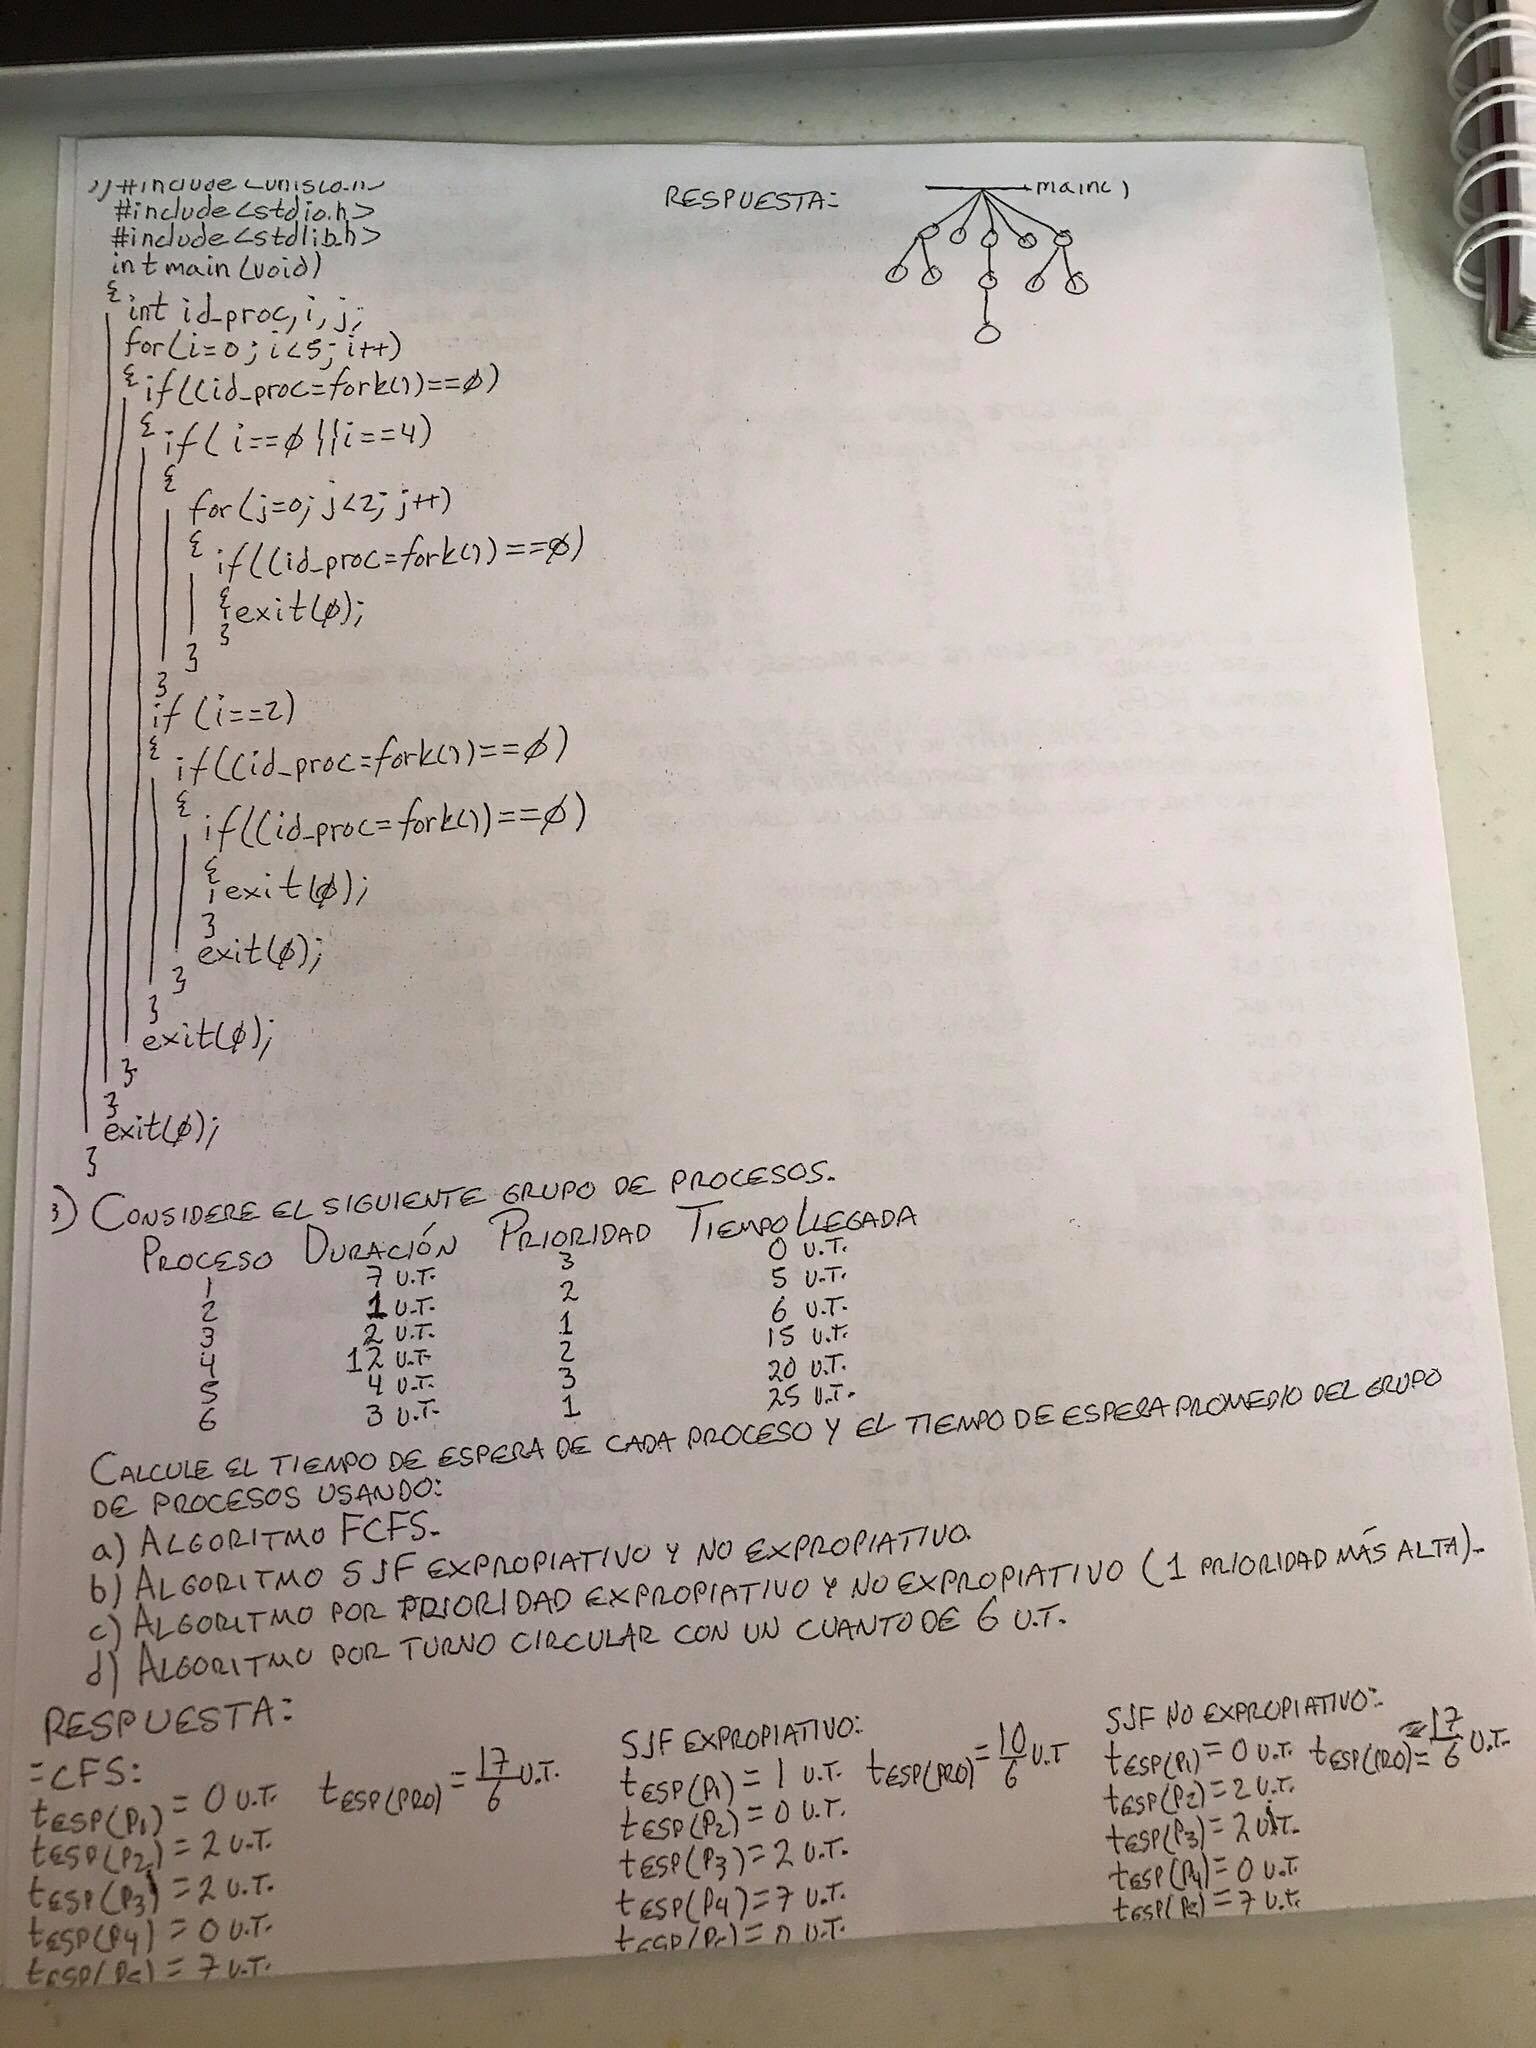 #include <unistd.h>
RESPUESTA:
main()
#include <stdio.h>
#include <stdlib.h>
int main (void)
{
int id_proc, i, j;
for(i=0; i<5; i++)
{ if((id_proc=fork())==Ø)
{ if( i==Ø || i==4)
{
for(j=0; j<2; j++)
{ if((id_proc=fork())==Ø)
{ exit(Ø);
}
}
}
if (i==2)
{ if((id_proc=fork())==Ø)
{ if((id_proc=fork())==Ø)
{ exit(Ø);
}
exit(Ø);
}
}
exit(Ø);
}
}
exit(Ø);
}
3) CONSIDERE EL SIGUIENTE GRUPO DE PROCESOS.
PROCESO DURACIÓN PRIORIDAD TIEMPO LLEGADA
1 7 U.T. 3 0 U.T.
2 1 U.T. 2 5 U.T.
3 2 U.T. 1 6 U.T.
4 12 U.T. 2 15 U.T.
5 4 U.T. 3 20 U.T.
6 3 U.T. 1 25 U.T.
CALCULE EL TIEMPO DE ESPERA DE CADA PROCESO Y EL TIEMPO DE ESPERA PROMEDIO DEL GRUPO
DE PROCESOS USANDO:
a) ALGORITMO FCFS.
b) ALGORITMO SJF EXPROPIATIVO Y NO EXPROPIATIVO.
c) ALGORITMO POR PRIORIDAD EXPROPIATIVO Y NO EXPROPIATIVO (1 PRIORIDAD MÁS ALTA).
d) ALGORITMO POR TURNO CIRCULAR CON UN CUANTO DE 6 U.T.
RESPUESTA:
FCFS:
tESP(P1) = 0 U.T. tESP(PRO) = 17/6 U.T.
tESP(P2) = 2 U.T.
tESP(P3) = 2 U.T.
tESP(P4) = 0 U.T.
tESP(P5) = 7 U.T.
SJF EXPROPIATIVO:
tESP(P1) = 1 U.T. tESP(PRO) = 10/6 U.T
tESP(P2) = 0 U.T.
tESP(P3) = 2 U.T.
tESP(P4) = 7 U.T.
tESP(P5) = 0 U.T.
SJF NO EXPROPIATIVO:
tESP(P1) = 0 U.T. tESP(PRO) = 17/6 U.T.
tESP(P2) = 2 U.T.
tESP(P3) = 2 U.T.
tESP(P4) = 0 U.T.
tESP(P5) = 7 U.T.